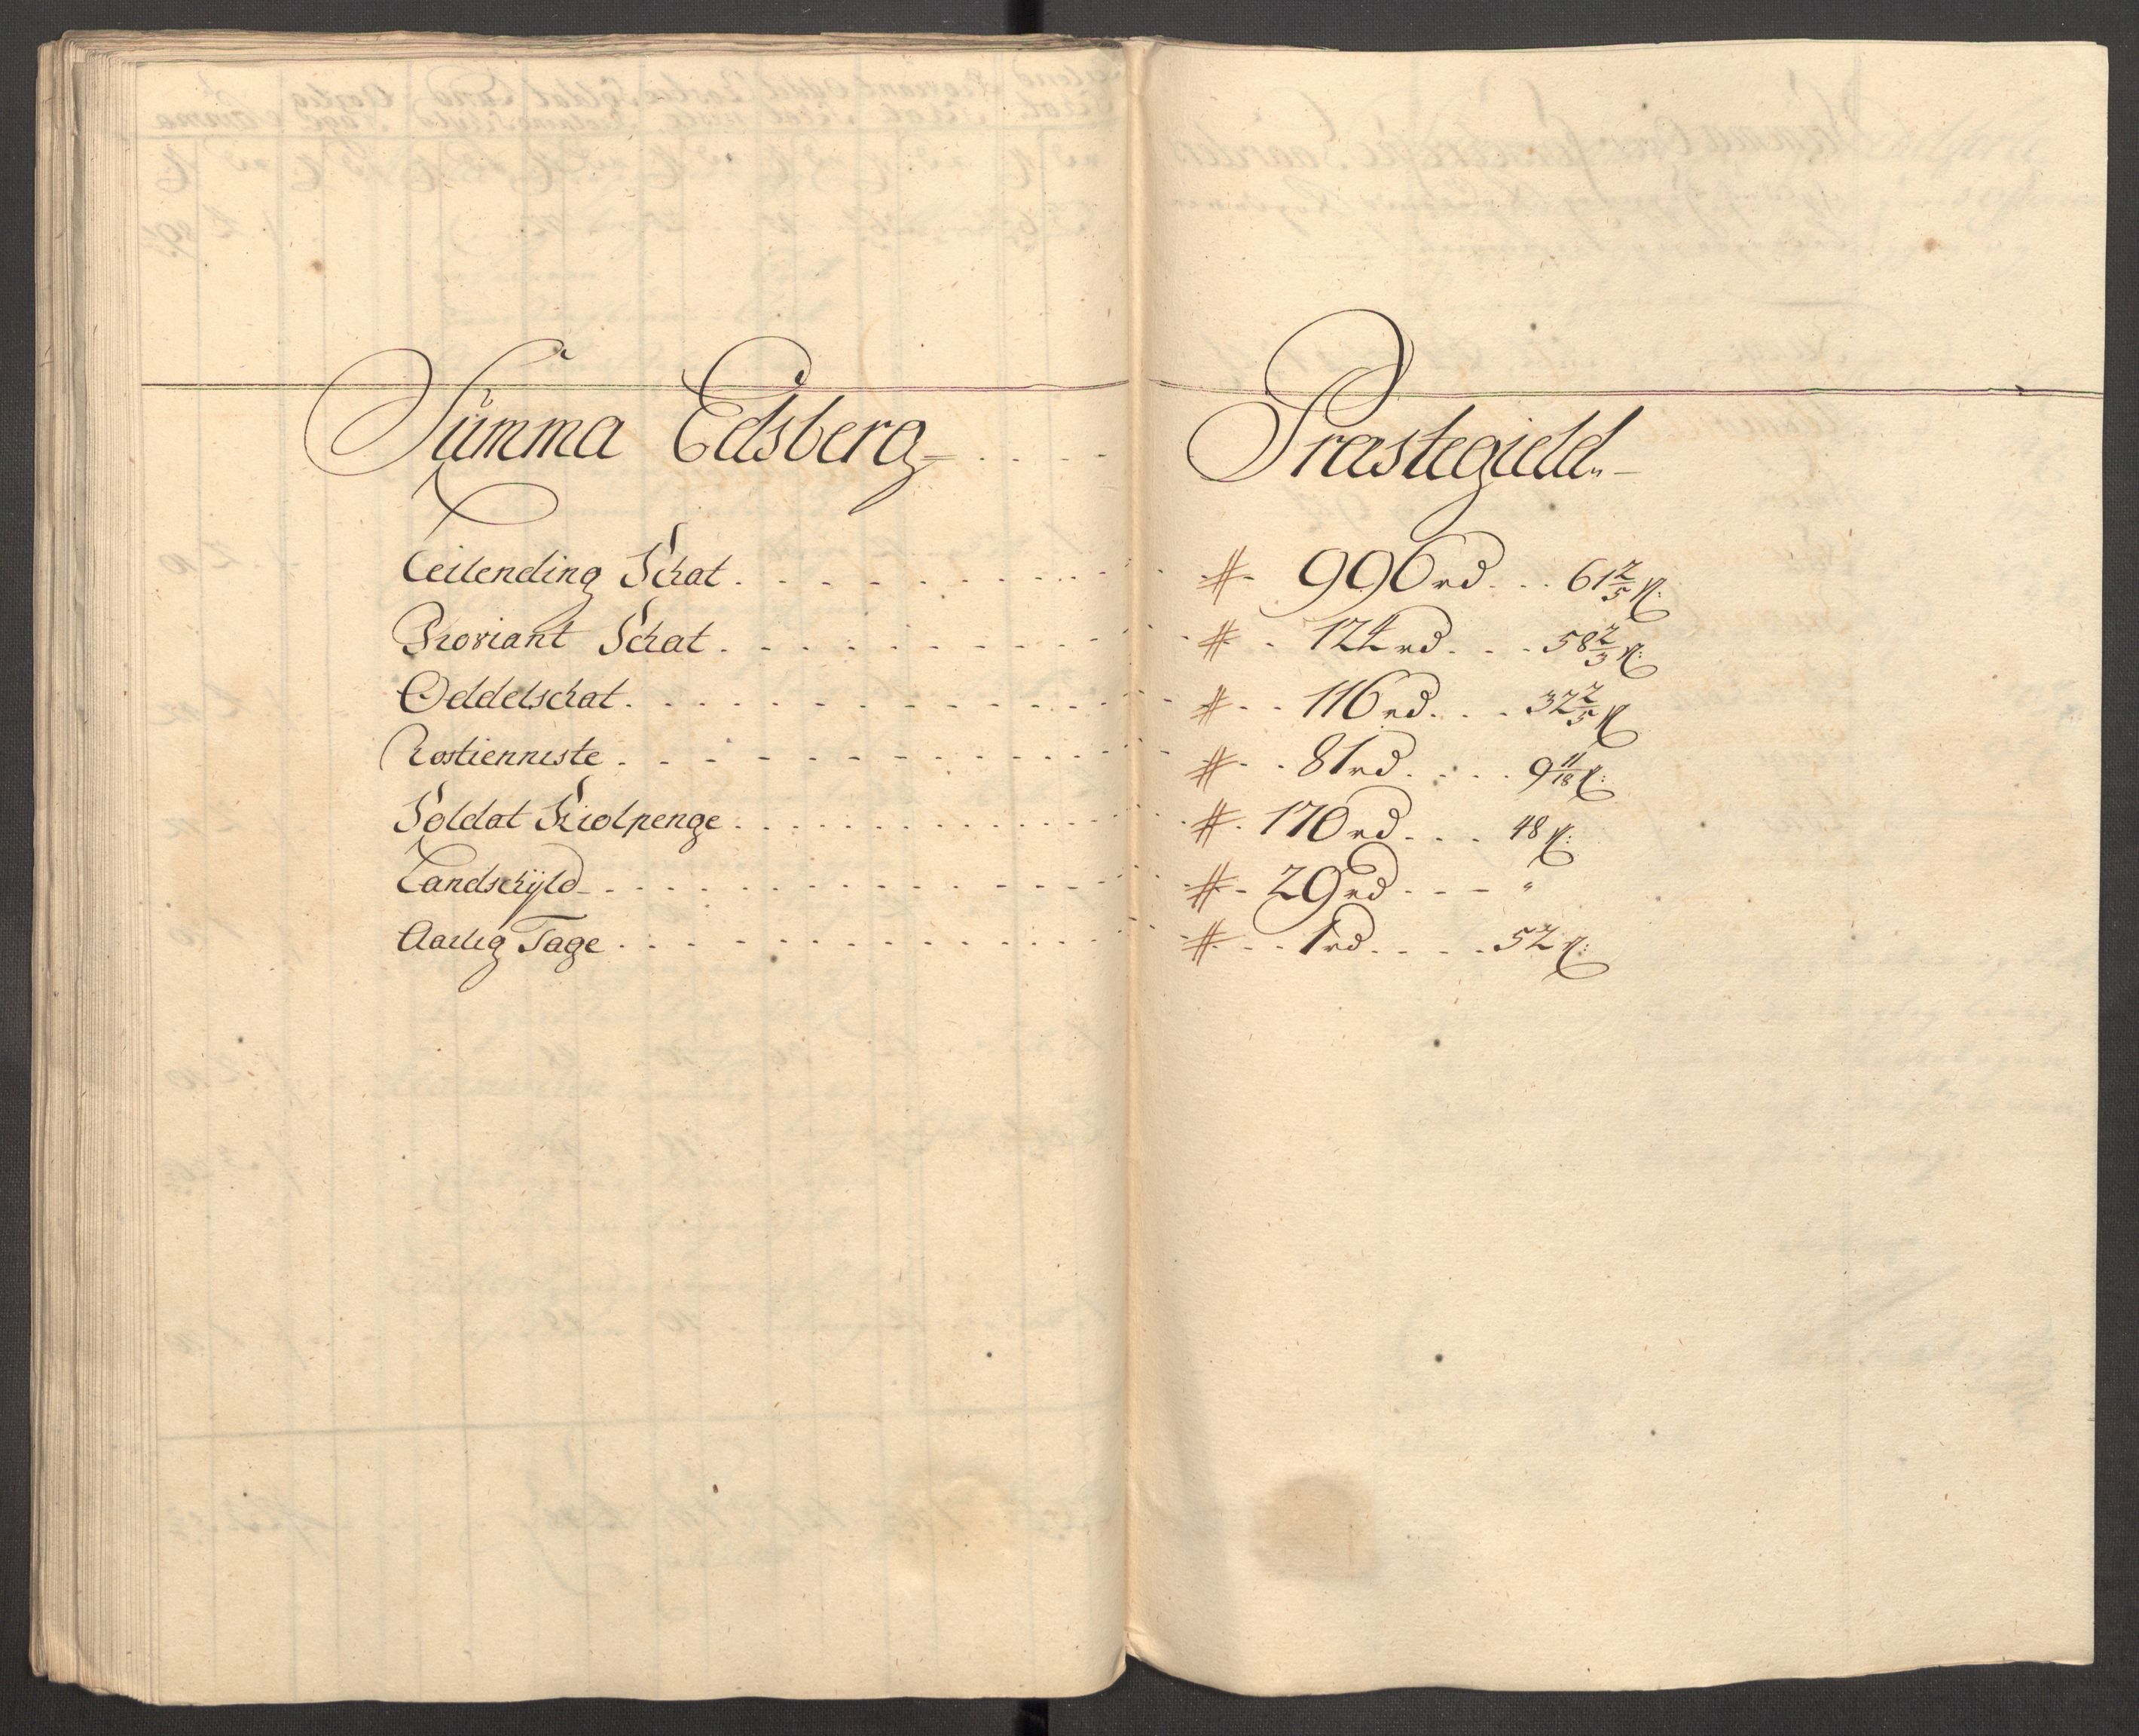 Summa Edsberg Præstegield
Leilending Schat # 996 rd 61 2/5 ß
Proviant Schat # 124 rd 58 2/5 ß
Oddelschat # 116 rd 32 2/5 ß
Rostienniste # 81 rd 9 11/18 ß
Soldat Skiolpenge # 170 rd 48 ß
Landschÿld # 29 rd "
Aarlig Tage # 1 rd 52 ß